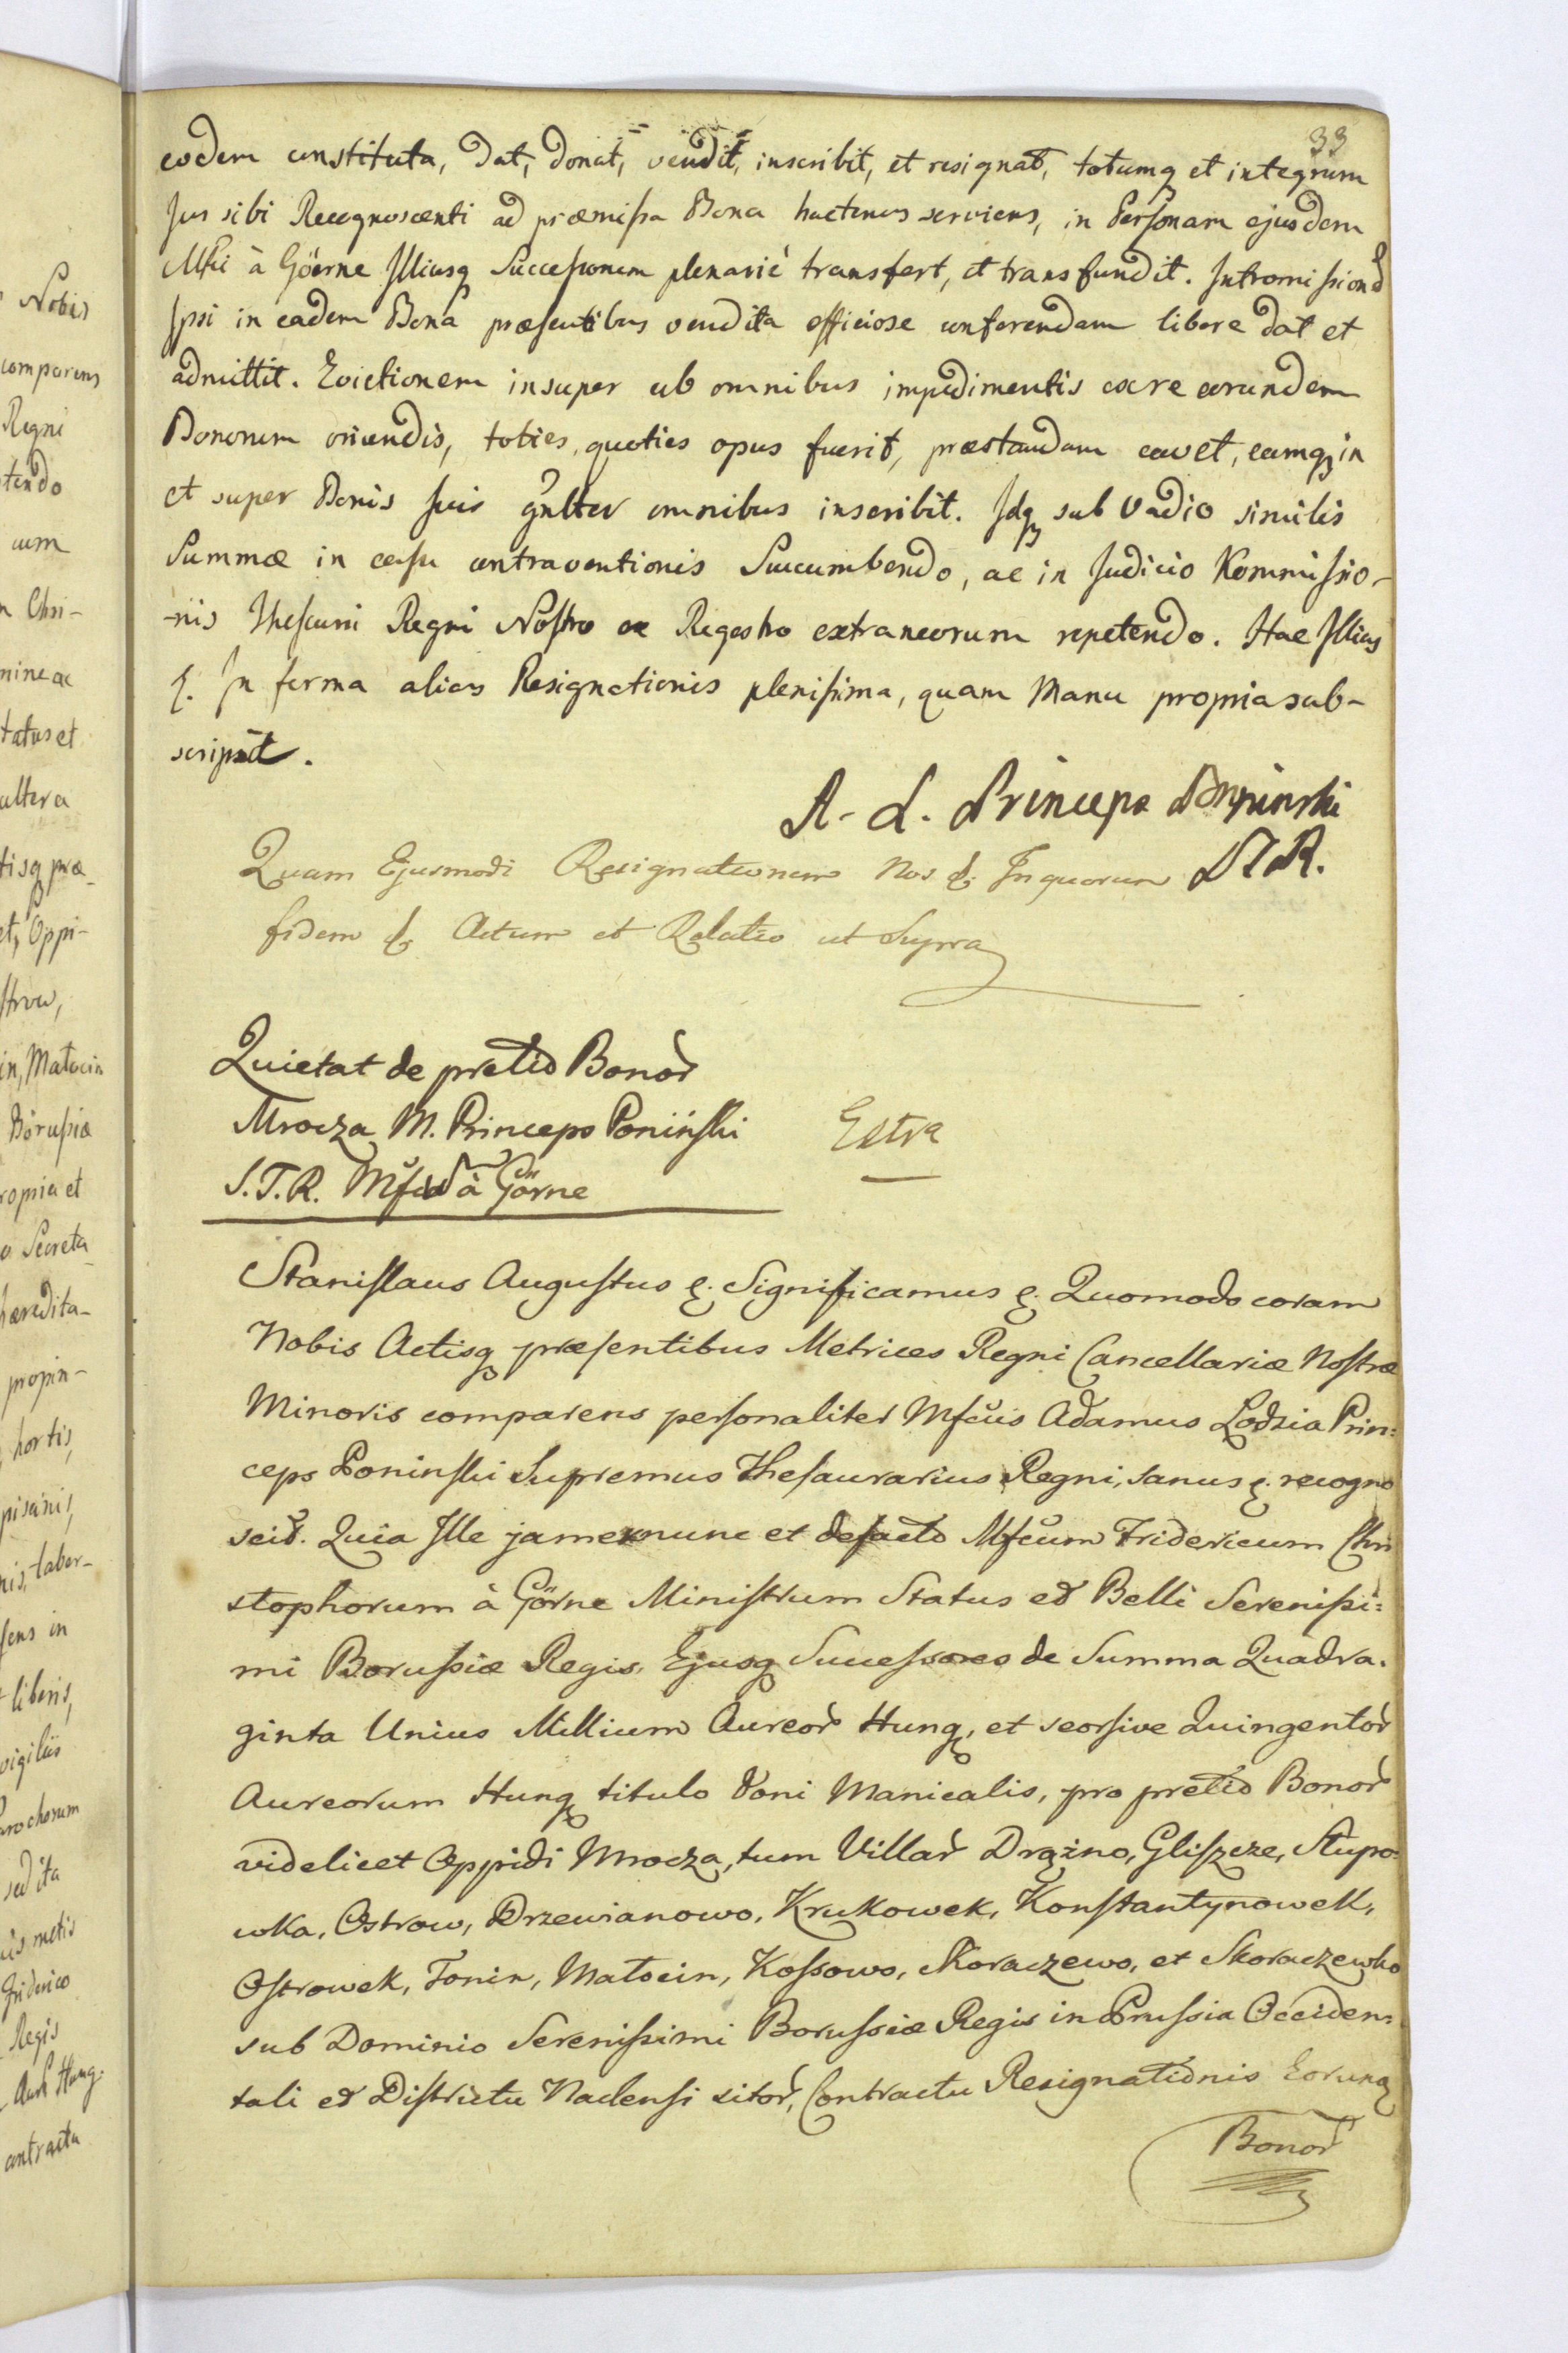 33
eodem constituta, dat, donat, vendit, inscribit, et resignat, totumq et integrum
Jus sibi Recognoscenti ad præmissa Bona hactenus serviens, in Personam ejusdem
Mfci à Göerne Illiusq Successorum plenarie transfert, et transfundit. Intromissionē
Ipsi in eadem Bona præsentibus vendita officiose conferendam libere dat et
admittit. Evictionem insuper ab omnibus impedimentis ex re eorundem
Bonorum oriundis, toties, quoties opus fuerit, præstandam cavet, eamq in
et super Bonis suis gnlter omnibus inscribit. Idq sub Vadio similis
Summæ in casu contraventionis Succumbendo, ac in Judicio Kommissio-
-nis Thesauri Regni Nostro ex Regestro extraneorum repetendo. Hac Illius
&. In forma alias Resignationis plenissima, quam Manu propria sub-
scripsit.
A. L. Princeps Poninski
S T R.
Quam Ejusmodi Resignationem Nos &. In quorum
fidem &. Actum et Relatio ut Supra
Quietat de pretio Bonor
Mrocza M. Princeps Poniński
S. T. R. Mfcū à Görne
Extra
Stanislaus Augustus &. Significamus &. Quomodo coram
Nobis Actisq præsentibus Metrices Regni Cancellariæ Nostræ
Minoris comparens personaliter Mfcus Adamus Lodzia Prin:
ceps Poninski Supremus Thesaurarius Regni, sanus &. recogno
scit. Quia Ille jam ex nunc et de facto Mfcum Fridericum Chri
stophorum à Görne Ministrum Status et Belli Serenissi:
mi Borussiæ Regis, Ejusq Successores de Summa Quadra.
ginta Unius Millium Aureor Hung, et seorsive Quingentor
Aureorum Hung titulo Doni Manicalis, pro pretio Bonor
videlicet Oppidi Mrocza, tum Villar Drążno, Gliszcze, Stupo:
wka, Ostrow, Drzewianowo, Krukowek, Konstantynowek,
Ostrowek, Tonin, Matocin, Kossowo, Skoraczewo, et Skoraczewko
sub Dominio Serenissimi Borussiæ Regis in Prussia Occiden:
tali et Districtu Naclensi sitor, Contractu Resignationis Eorunq
Bonor
Nobis
comparens
Regni
tendo
cum
Chri-
tatus et
altera
tisq præ-
et, Oppi-
in, Matocin
Borussiæ
ropria et
Secreta-
hæredita-
propin-
hortis,
taber-
sens in
liberis,
vigiliis
Parochorum
sed ita
metis
Friderico
Regis
Aur Hung.
contractu